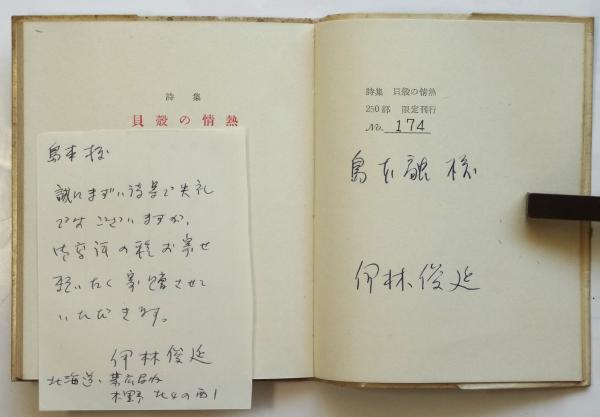 詩集
貝殻の情熱
島本様
誠にまずい詩集で失礼
ではございますが、
御高評の程お寄せ
いたく寄贈させて
いただきます。
伊林俊延
北海道、帯広局内
木野 北4の西1
詩集 貝殻の情熱
250部 限定刊行
No. 174
島本融様
伊林俊延